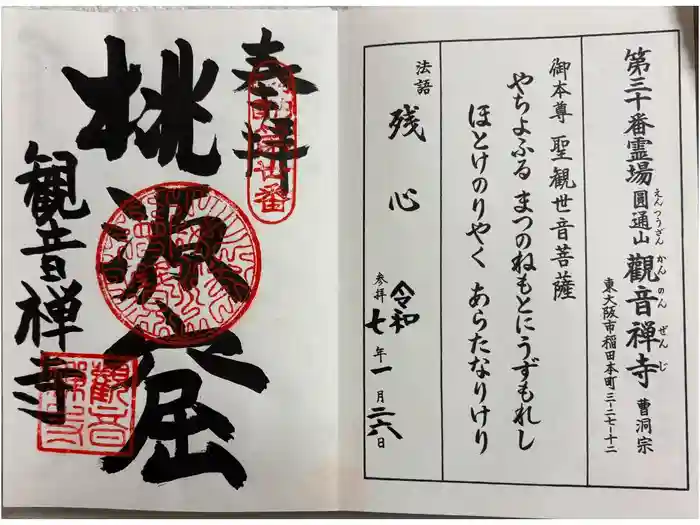 第三十番霊場 圓通山 觀音禅寺 曹洞宗
えんつうざん かんのんぜんじ
東大阪市稲田本町三-二七-十二
御本尊 聖観世音菩薩
やちよふる まつのねもとにうずもれし
ほとけのりやく あらたなりけり
法語 残心
参拝 令和七年一月二六日
奉拝
桃源窟
観音禅寺
觀音禅寺